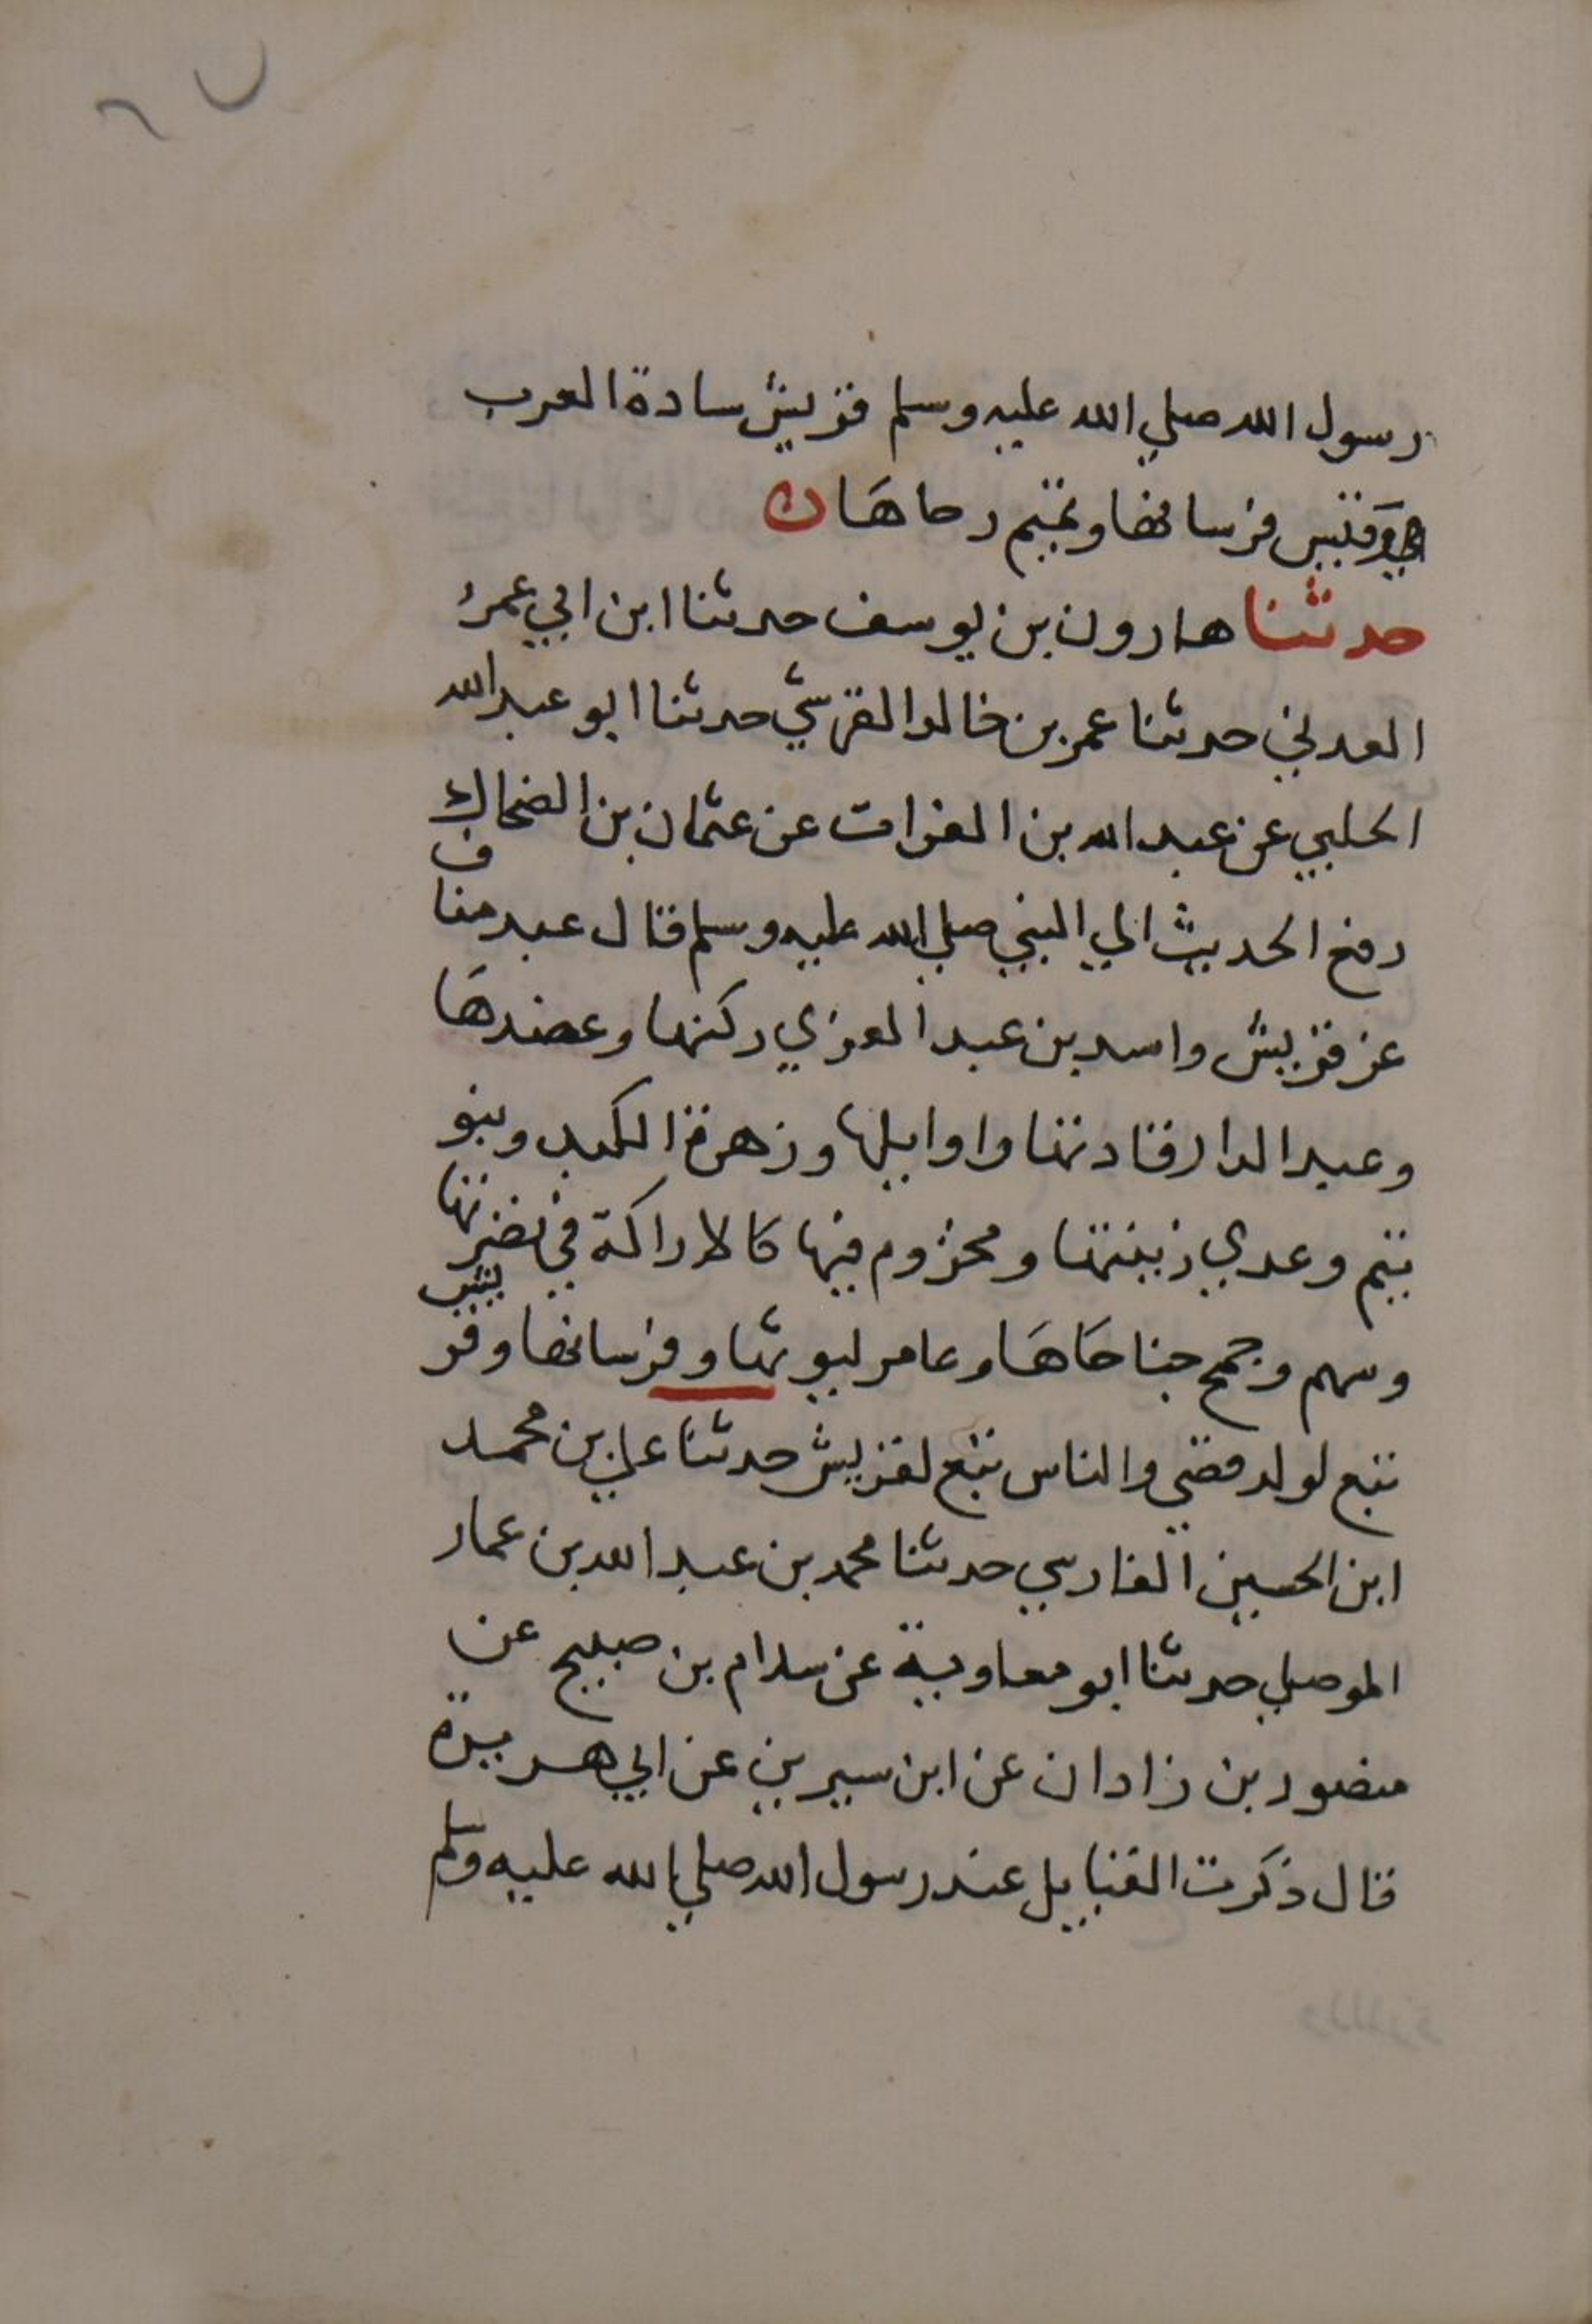 رسول الله صلي الله عليه وسلم قريش سادة العرب
وقيس فرسانها وتميم رحاها
حدثنا هارون بن يوسف حدثنا ابن ابي عمر
العدني حدثنا عمر بن خالد القرشي حدثنا ابو عبد الله
الحلبي عن عبد الله بن الفرات عن عثمان بن الضحاك
رفع الحديث الي النبي صلي الله عليه وسلم قال عبد مناف
عز قريش واسد بن عبد العزي ركنها وعضدها
وعبد الدار قادتها واوايلها وزهرة الكبد وبنو
تيم وعدي زينتها ومخزوم فيها كالاراكة في نضرتها
وسهم وجمح جناحاها وعامر ليوثها وفرسانها وقريش
تبع لولد قصي والناس تبع لقريش حدثنا علي بن محمد
ابن الحسين الفارسي حدثنا محمد بن عبد الله بن عمار
الموصلي حدثنا ابو معاوية عن سلام بن صبيح عن
منصور بن زادان عن ابن سيرين عن ابي هريرة
قال ذكرت القبايل عند رسول الله صلي الله عليه وسلم